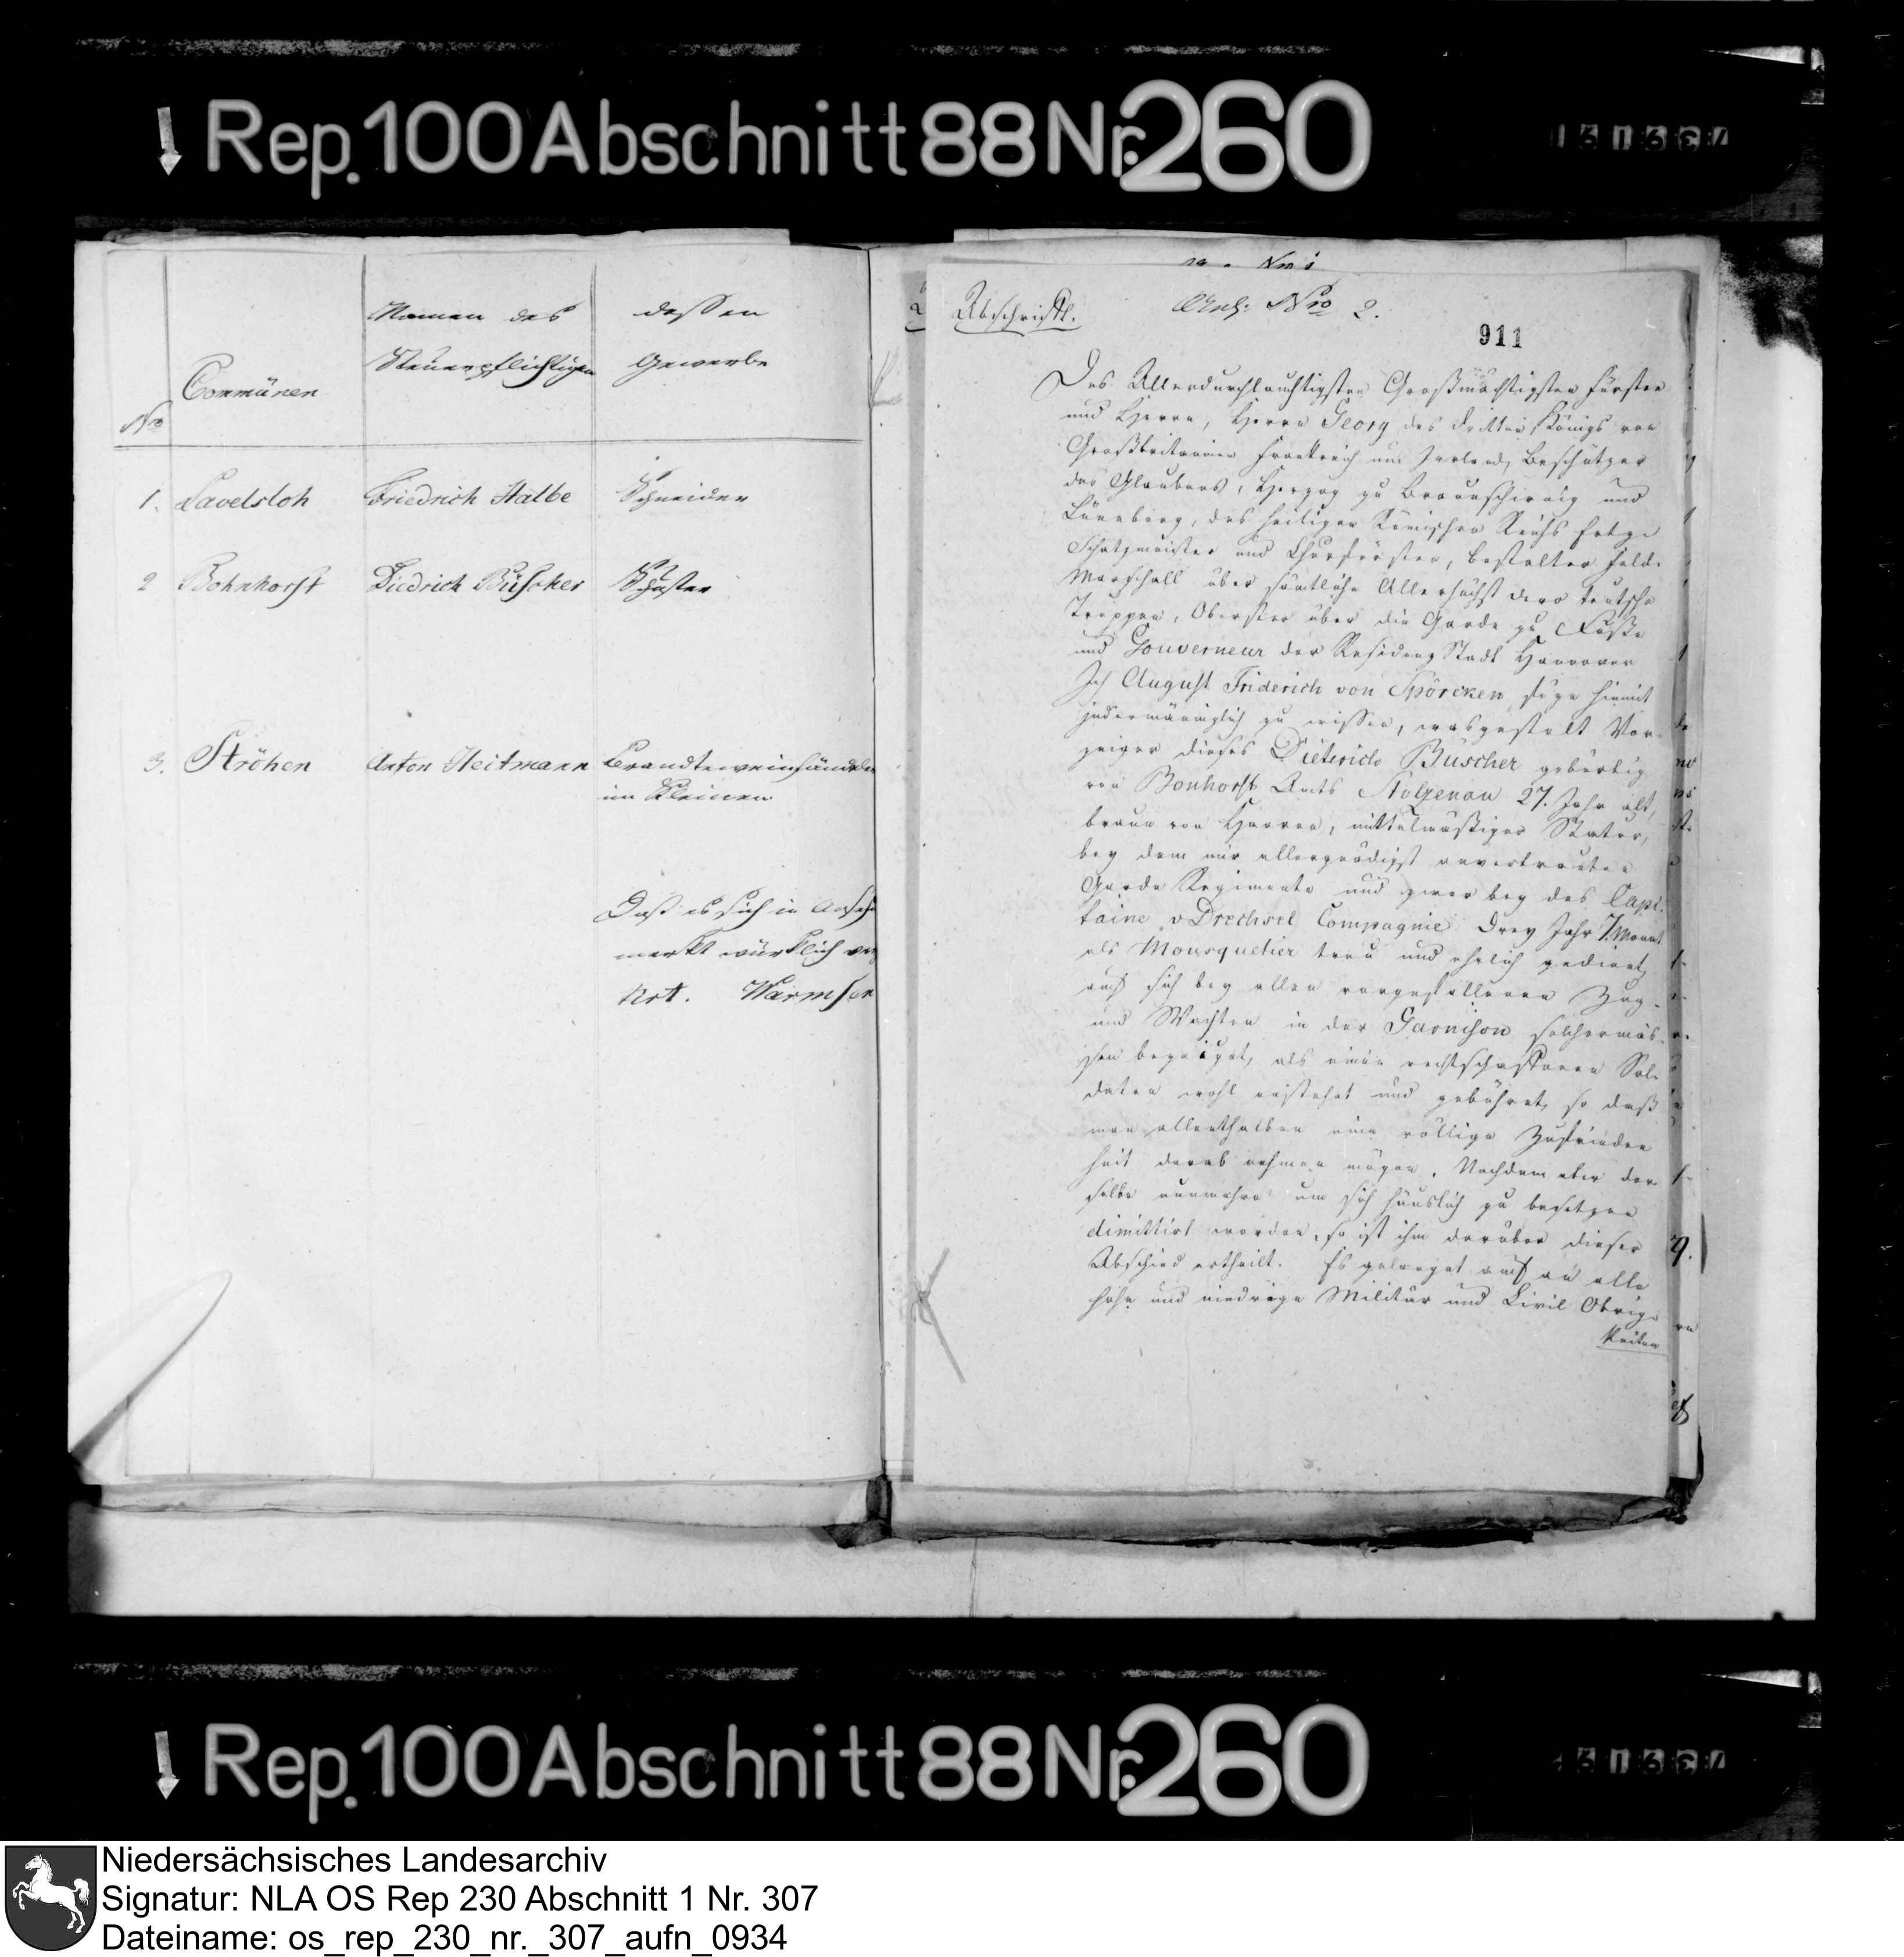 Rep. 100 Abschnitt 88 Nr. 260
161637
Namen des
Steuerpflichtigen
dessen
Gewerbe
Communen
Nro
1. Lavelsloh Friedrich Halbe Schneider
2 Bohnhorst Diedrich Büscher Schuster
3. Ströhen Anton Heitmann Brandteweinhändler
im Kleinen
Daß es sich in
merkt würklich
Art. Warmsen
Abschriftl.
Anl: Nro 2.
911
Des Allerdurchlauchtigsten Großmächtigsten Fürsten
und Herrn, Herrn Georg des dritten Königs von
Großbritannien Frankreich und Irrland, Beschützer
des Glaubens, Herzog zu Braunschweig und
Lüneburg, des heiligen Römischen Reichs Ertze
Schatzmeister und Churfürsten, bestalter Feld-
Marschall über sämtliche Allerhöchst dero teutsche
Truppen, Oberster über die Garde zu Fuße
und Gouverneur der Residenz Stadt Hannover
Ich August Friderich von Spörcken füge hiemit
jedermänniglich zu wissen, wasgestalt Vor-
zeiger dieses Dieterich Büscher gebürtig
von Bonhorst Amts Stolzenau 27. Jahr alt,
braun von Haaren, mittelmäßiger Statur,
bey dem mir allergnädigst anvertrauten
Garde Regimente und zwar bey des Capi-
taine v Drechsel Compagnie Drey Jahr 7. Monat
als Mousquetier treu und ehrlich gedient,
auch sich bey allen vorgefallenen Zug-
und Wachten in der Garnison solchermas-
sen bezeiget, als einen rechtschaffenen Sol-
daten wohl anstehet und gebühret, so daß
man allenthalben eine völlige Zufrieden
heit darab nehmen mögen. Nachdem aber der-
selbe nunmehro um sich häuslich zu besetzen
dimittirt worden, so ist ihm darüber dieser
Abschied ertheilt. Es gelanget auch an alle
hohe und niedrige Militär und Civil Obrig-
keiten
Rep. 100 Abschnitt 88 Nr. 260
161637
Niedersächsisches Landesarchiv
Signatur: NLA OS Rep 230 Abschnitt 1 Nr. 307
Dateiname: os_rep_230_nr._307_aufn_0934